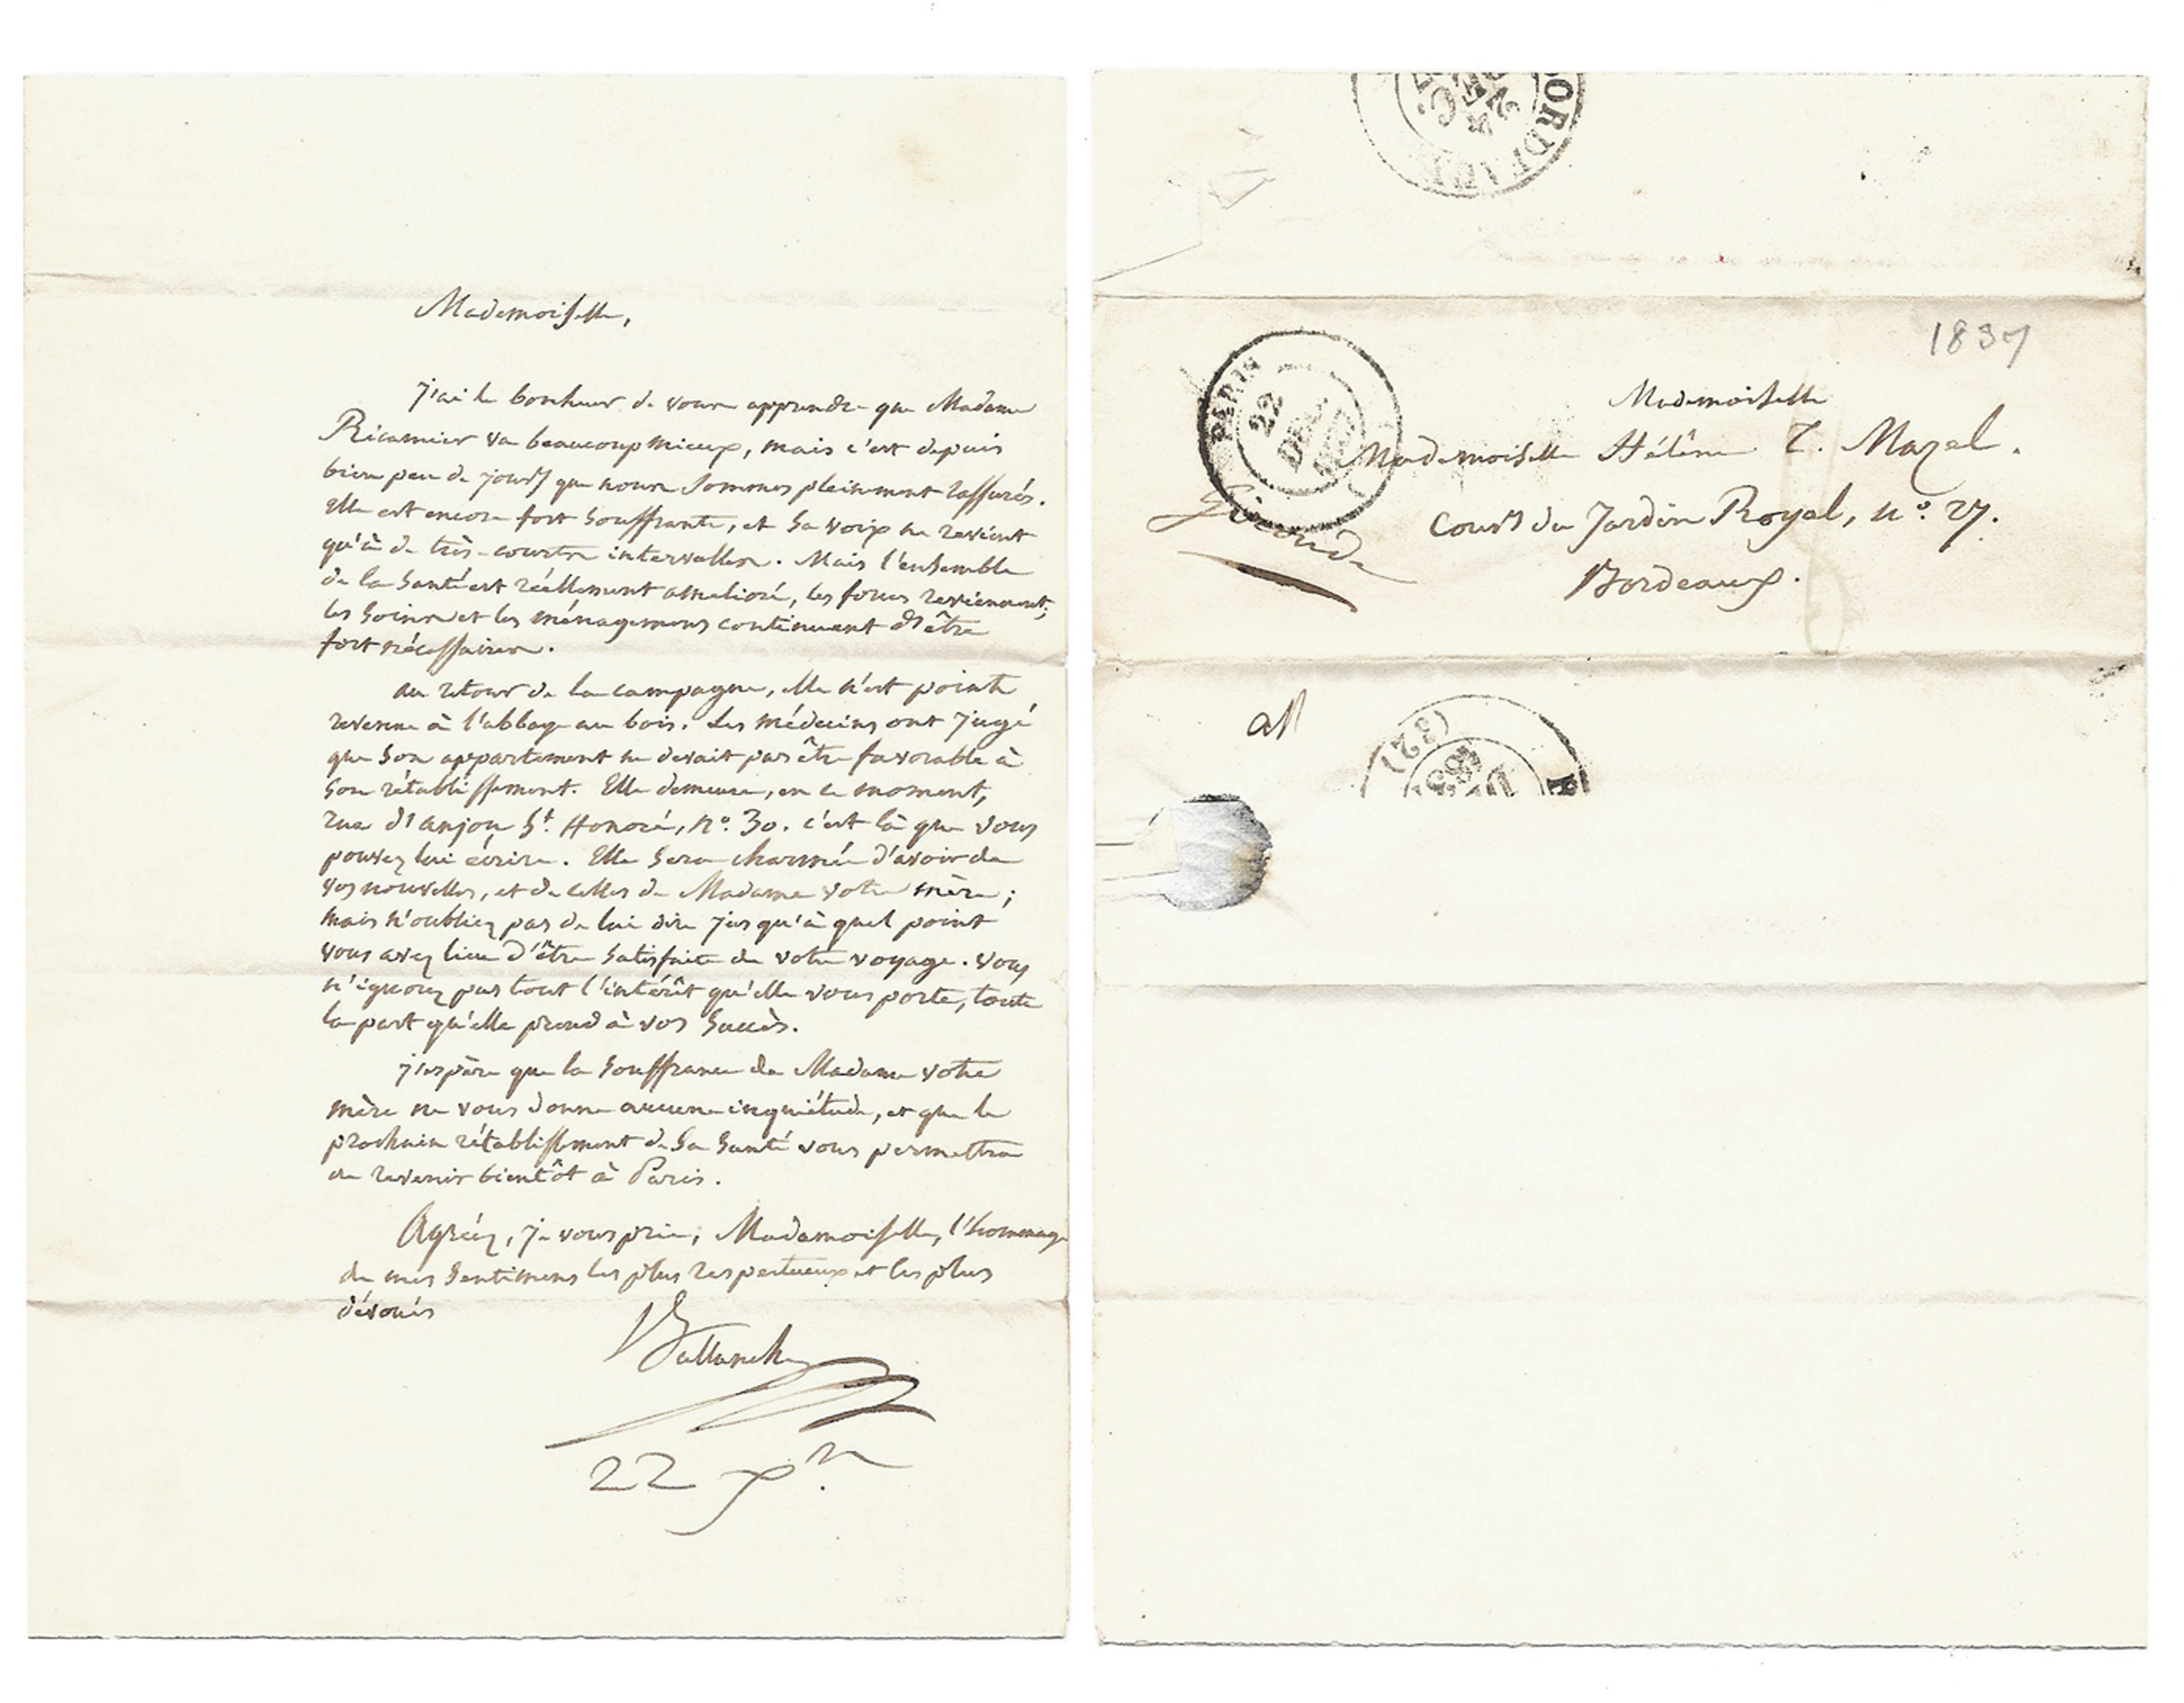 Mademoiselle,
j'ai le bonheur de vous apprendre que Madame
Récamier va beaucoup mieux, mais c'est depuis
bien peu de jours que nous sommes pleinement rassurés.
Elle est encore fort souffrante, et sa voix ne revient
qu'à de très-courts intervalles. Mais l'ensemble
de la santé est réellement amélioré, les forces reviennent;
les soins et les ménagemens continuent d'être
fort nécessaires.
au retour de la campagne, elle n'est point
revenue à l'abbaye au bois. Les médecins ont jugé
que son appartement ne devait pas être favorable à
son rétablissement. Elle demeure, en ce moment,
rue d'anjou St. Honoré, no. 30. c'est là que vous
pouvez lui écrire. Elle sera charmée d'avoir de
vos nouvelles, et de celles de Madame votre mère;
mais n'oubliez pas de lui dire jusqu'à quel point
vous avez lieu d'être satisfaite de votre voyage. vous
n'ignorez pas tout l'intérêt qu'elle vous porte, toute
la part qu'elle prend à vos succès.
j'espère que la souffrance de Madame votre
mère ne vous donne aucune inquiétude, et que le
prochain rétablissement de sa santé vous permettra
de revenir bientôt à Paris.
Agréez, je vous prie, Mademoiselle, l'hommage
de mes sentimens les plus respectueux et les plus
dévoués
Ballanche
22 Xre.
BORDEAUX
24
1837
PARIS
22
DEC.
Mademoiselle
Mademoiselle Hélène T. Mazel.
Cours du Jardin Royal, no. 27.
Bordeaux.
Gironde
(32)